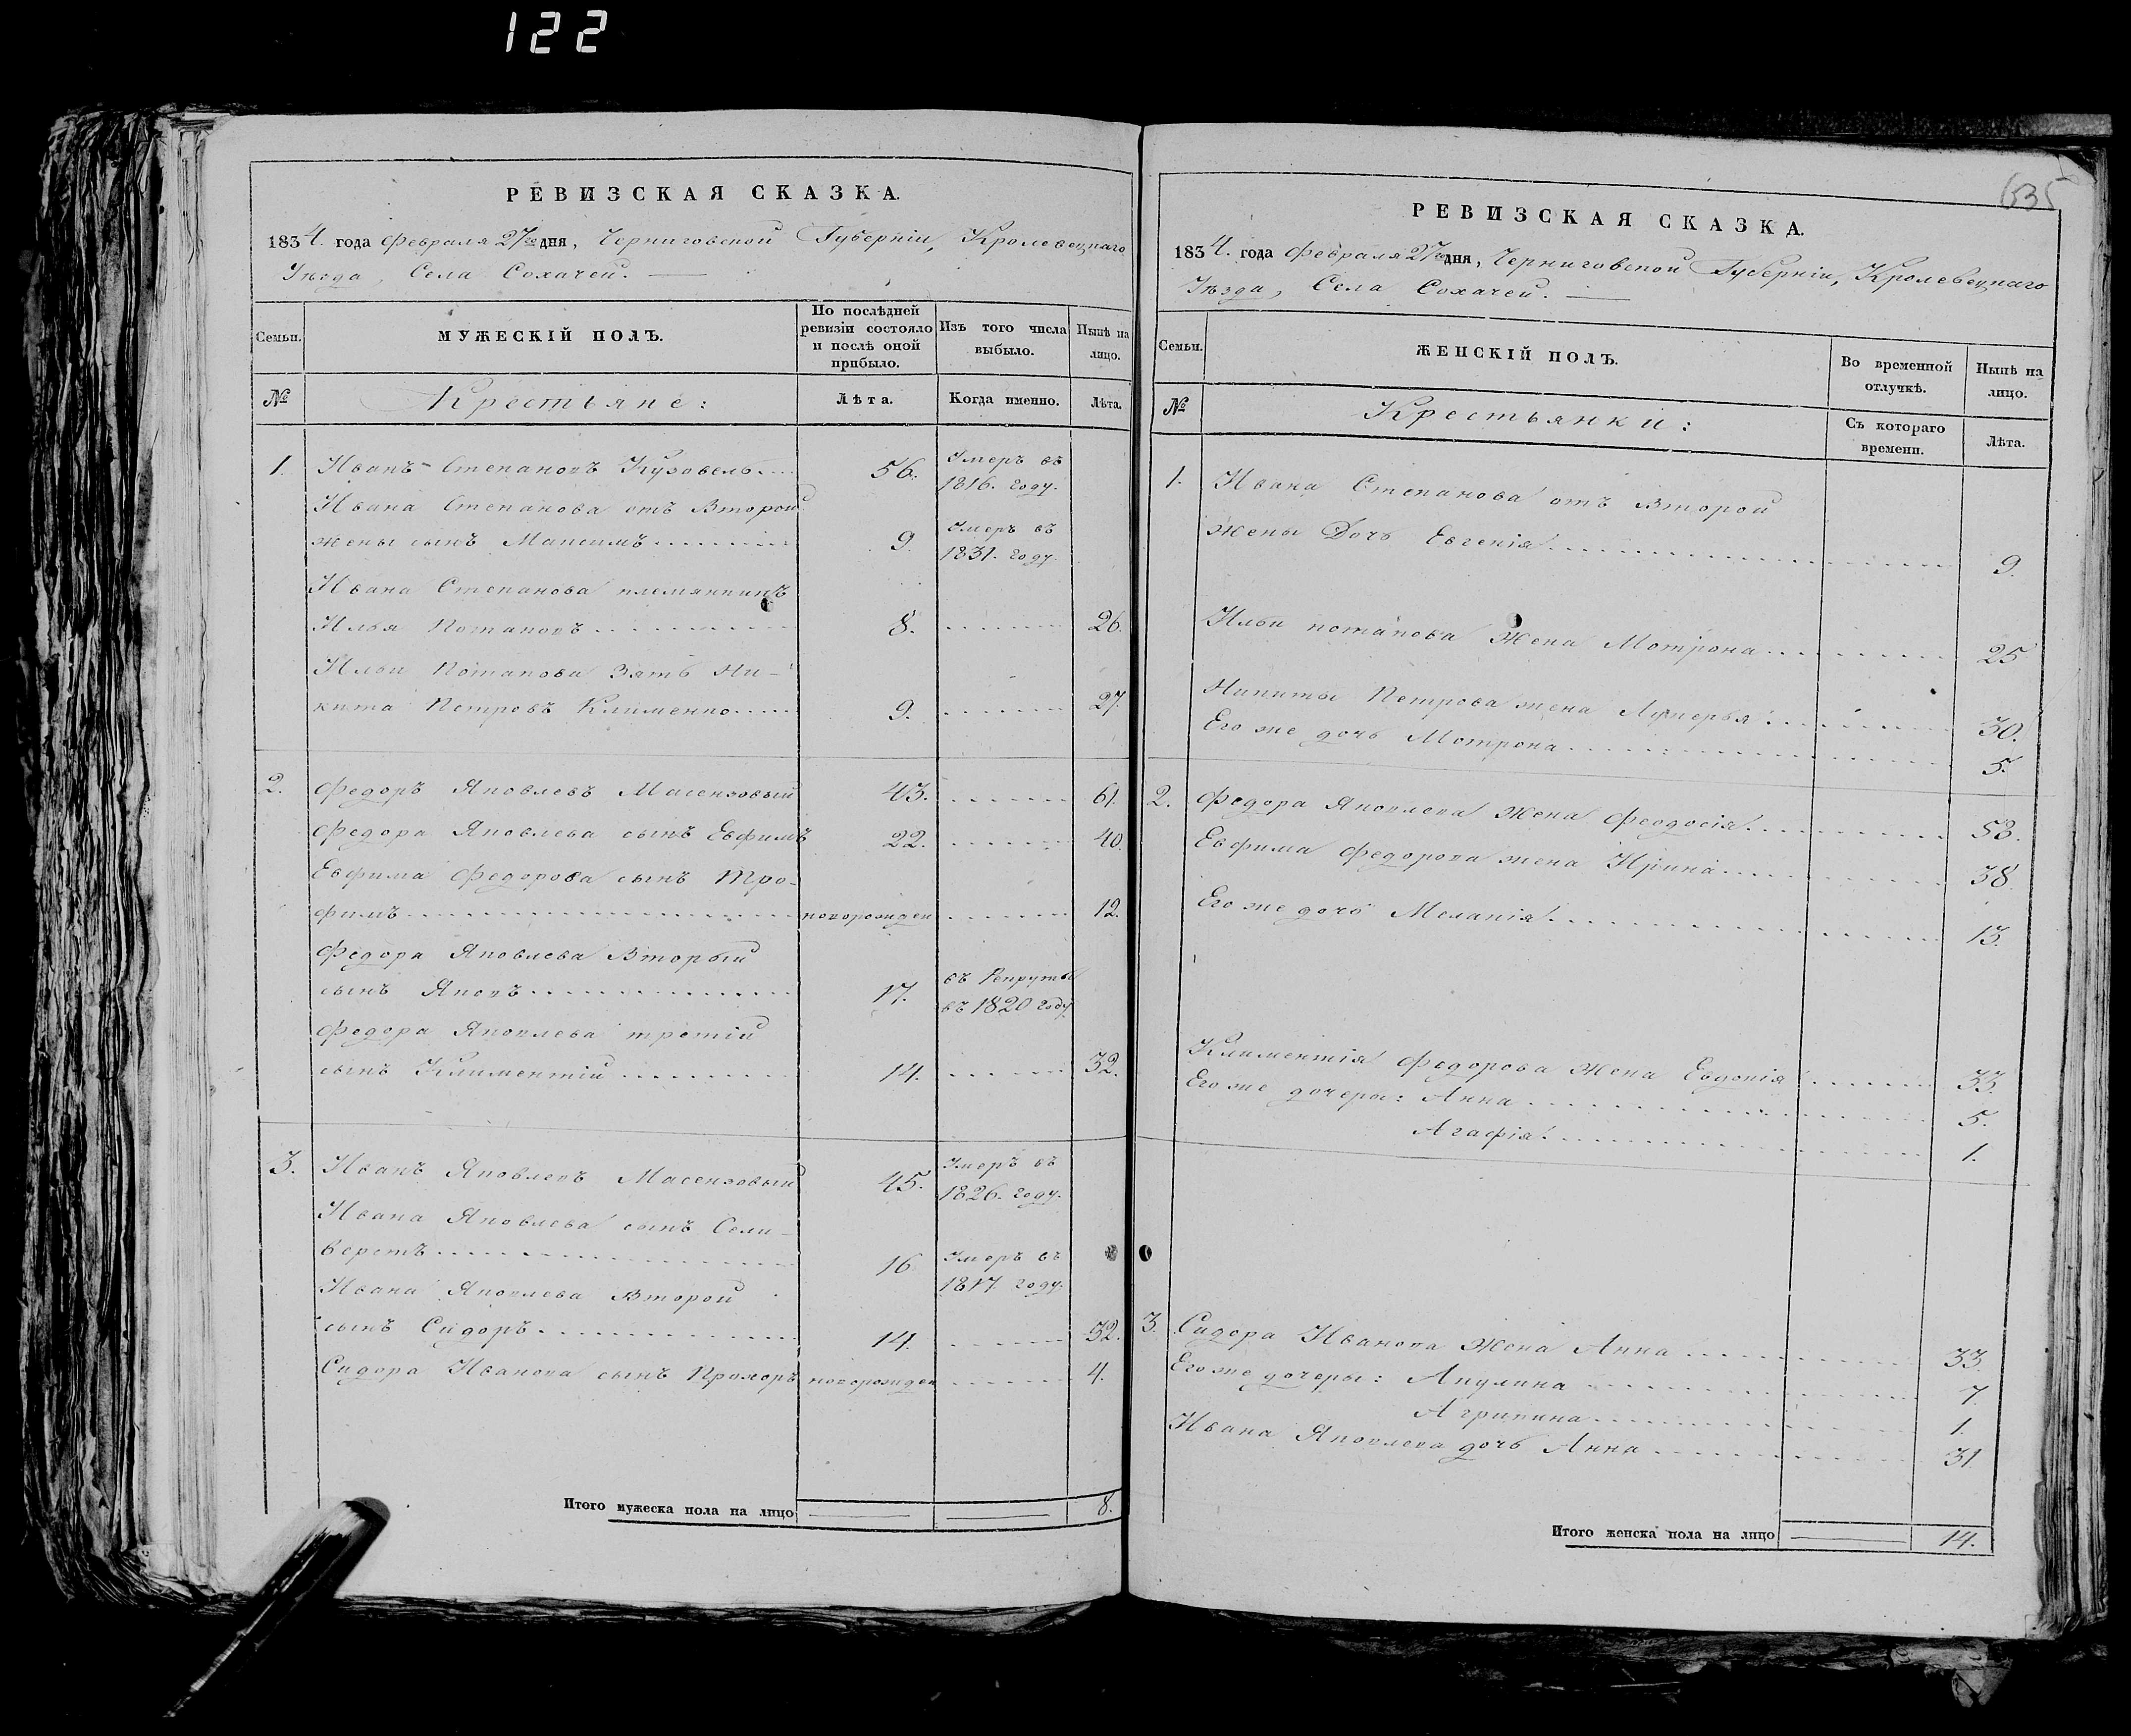 122
635
РЕВИЗСКАЯ СКАЗКА.
1834. года Февраля 27го дня, Черниговской Губерніи, Кролевецкаго
Уѣзда, Села Сохачей.
Семьи.
МУЖЕСКІЙ ПОЛЪ.
По послѣдней ревизіи состояло и послѣ оной прибыло.
Изъ того числа выбыло.
Нынѣ на лицо.
№
Крестьяне:
Лѣта.
Когда именно.
Лѣта.
1. Иванъ Степановъ Кузовель 56. Умеръ въ
1816. году.
Ивана Степанова отъ Второй
жены сынъ Максимъ 9. Умеръ въ
1831. году.
Ивана Степанова племянникъ
Илья Потаповъ 8. 26.
Ильи Потапова Зять Ни-
кита Петровъ Клименко 9. 27.
2. Федоръ Яковлевъ Масензовый 43. 61.
Федора Яковлева сынъ Евфимъ 22. 40.
Евфима Федорова сынъ Тро-
фимъ новорожден 12.
Федора Яковлева Вторый
сынъ Яковъ 17. въ Рекруты
въ 1820 году
Федора Яковлева третій
сынъ Климентій 14. 32.
3. Иванъ Яковлевъ Масензовый 45. Умеръ въ
1826. году.
Ивана Яковлева сынъ Сели-
верстъ 16. Умеръ въ
1817. году.
Ивана Яковлева Второй
сынъ Сидоръ 14. 32.
Сидора Иванова сынъ Прохоръ новорожден 4.
Итого мужеска пола на лицо 8.
РЕВИЗСКАЯ СКАЗКА.
1834. года Февраля 27го дня, Черниговской Губерніи, Кролевецкаго
Уѣзда, Села Сохачей.
Семьи.
ЖЕНСКІЙ ПОЛЪ.
Во временной отлучкѣ.
Нынѣ на лицо.
№
Крестьянки:
Съ котораго времени.
Лѣта.
1. Ивана Степанова отъ Второй
жены Дочь Евгенія 9.
Ильи потапова Жена Мотрона 25
Никиты Петрова жена Лукерья 30.
Его же дочь Мотрона 5.
2. Федора Яковлева Жена Феодосія 58.
Евфима Федорова жена Ирина 38
Его же дочь Меланія 13.
Климентія Федорова Жена Евдокія 33.
Его же дочеры: Анна 5.
Агафія 1.
3. Сидора Иванова Жена Анна 33
Его же дочеры: Акулина 7.
Агрипина 1.
Ивана Яковлева дочь Анна 31
Итого женска пола на лицо 14.